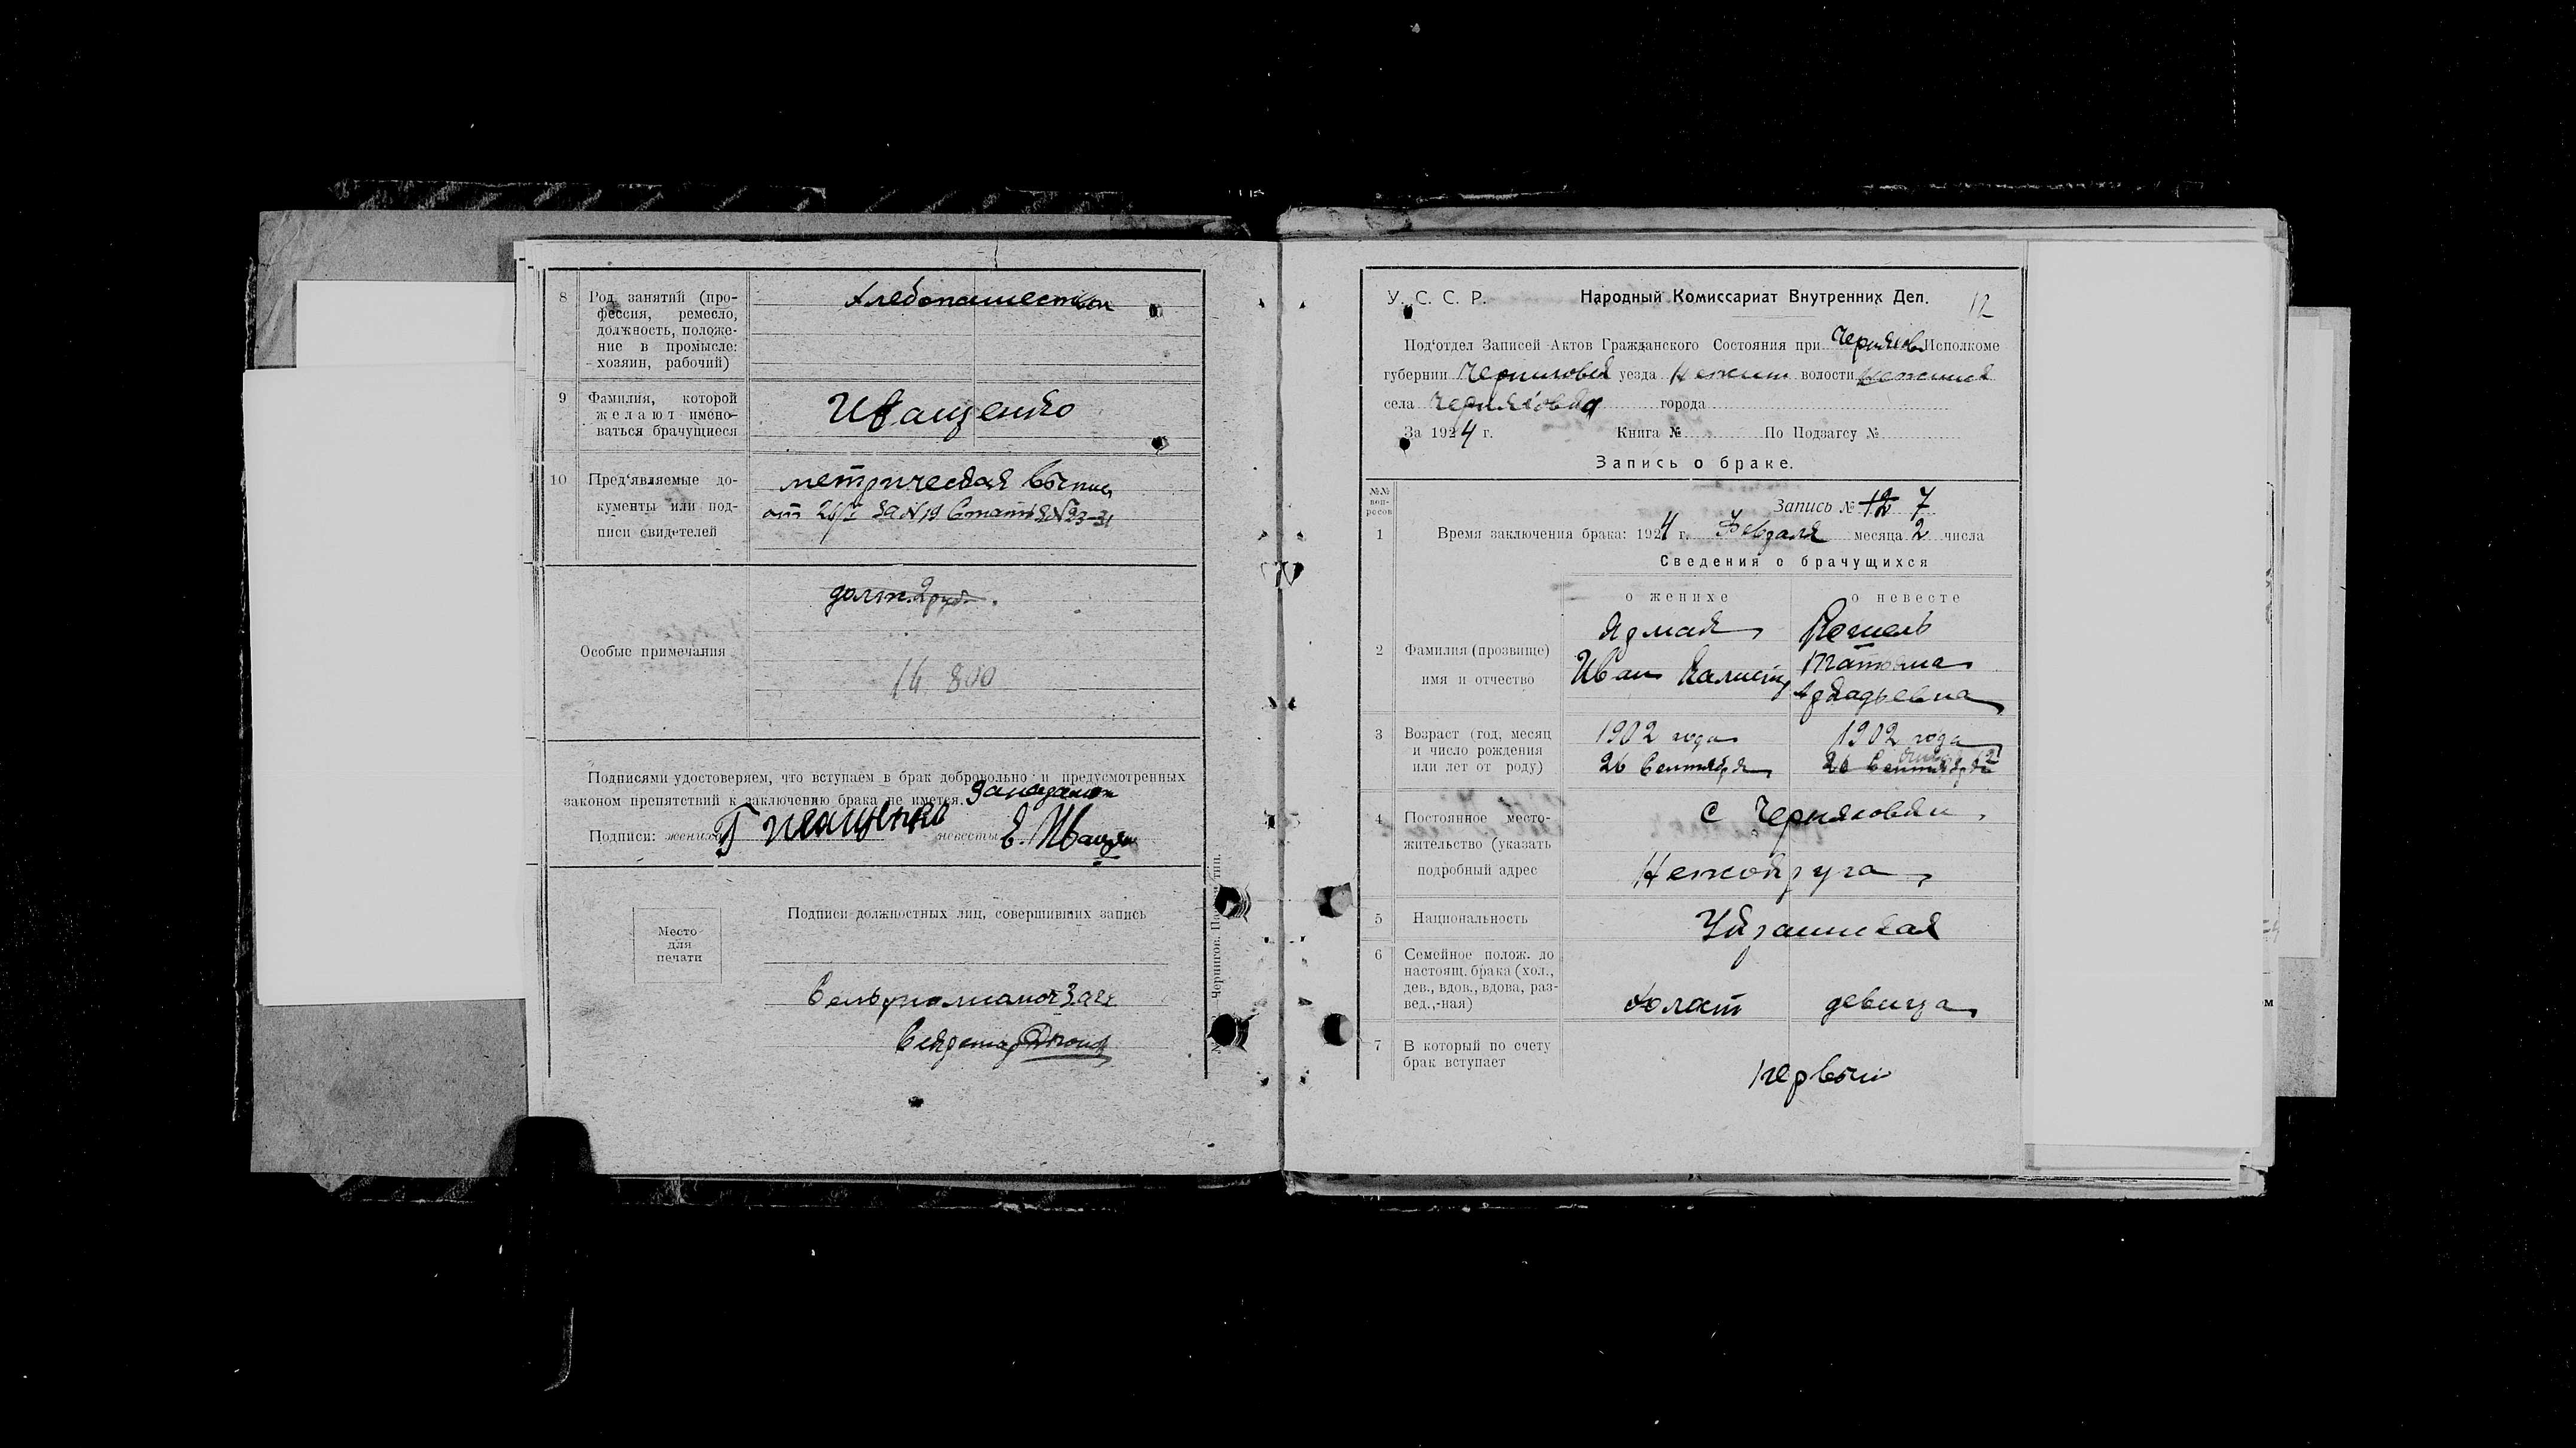 8 Род занятий (про-
фессия, ремесло,
должность, положе-
ние в промысле:
хозяин, рабочий)
Хлебопашеством
9 Фамилия, которой
желают имено-
ваться брачущиеся
Иващенко
10 Пред'являемые до-
кументы или под-
писи свидетелей
метрическая выпись
от 26/I за № 19
Особые примечания
14. 800
Подписями удостоверяем, что вступаем в брак добровольно и предусмотренных
законом препятствий к заключению брака не имется.
Подписи: жениха Г Иващенко невесты Е. Иващен
Место
для
печати
Подписи должностных лиц, совершивших запись
Секретар
У. С. С. Р. Народный Комиссариат Внутренних Дел. 12
Под'отдел Записей Актов Гражданского Состояния при Черняков Исполкоме
губернии Черниговск уезда Нежин волости Нежинск
села Черняховка города
За 1924 г. Книга № По Подзагсу №
Запись о браке.
№№ воп-
росов
Запись № 12 7
1 Время заключения брака: 1924 г. Февраля месяца 2 числа
Сведения о брачущихся
о женихе о невесте
2 Фамилия (прозвище)
имя и отчество
Ярмак
Иван
Кошель
Татьяна
Аркадьевна
3 Возраст (год, месяц
и число рождения
или лет от роду)
1902 года
26 Сентября
1902 года
26 Сентября
4 Постоянное место-
жительство (указать
подробный адрес
с Черняховки
5 Национальность
Украинская
6 Семейное полож. до
настоящ. брака (хол.,
дев., вдов., вдова, раз-
вед.,-ная)
холост девица
7 В который по счету
брак вступает
первый